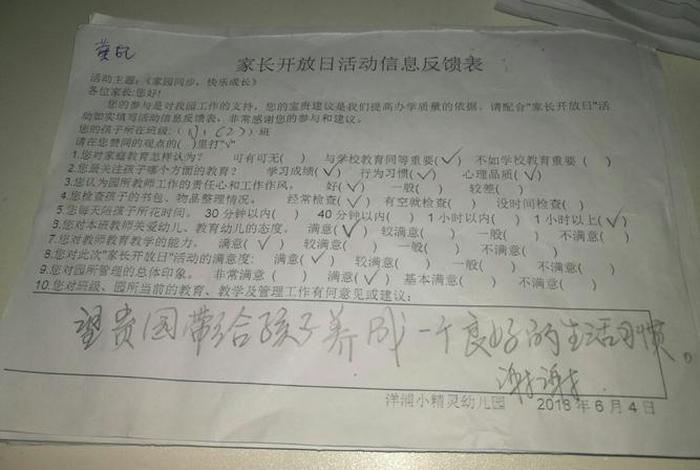 家长开放日活动信息反馈表
活动主题:《家园同步，快乐成长》
各位家长:您好!
您的参与是对我园工作的支持，您的宝贵建议是我们提高办学质量的依据。请配合"家长开放日"活
动如实填写活动信息反馈表，非常感谢您的参与和建议。
您的孩子所在班级:(小(2))班
请在您赞同的观点的( )里打"√"
1.您对家庭教育怎样认为? 可有可无( ) 与学校教育同等重要(√) 不如学校教育重要( )
2.您最关注孩子哪个方面的教育? 学习成绩(√) 行为习惯(√) 心理品质(√)
3.您认为园所教师工作的责任心和工作作风。 好(√) 一般( ) 较差( )
4.您检查孩子的书包、物品整理情况。 经常检查(√) 有空就检查( ) 没时间检查( )
5.您每天陪孩子所花时间。 30分钟以内( ) 40分钟以内( ) 1小时以内( ) 1小时以上(√)
6.您对本班教师关爱幼儿、教育幼儿的态度。 满意(√) 较满意( ) 一般( ) 不满意( )
7.您对教师教育教学的能力。 满意(√) 较满意( ) 一般( ) 不满意( )
8.您对此次"家长开放日"活动的满意度: 满意(√) 较满意( ) 一般( ) 不满意( )
9.您对园所管理的总体印象。 非常满意( ) 满意(√) 基本满意( ) 不满意( )
10.您对班级、园所当前的教育、教学及管理工作有何意见或建议:
望贵园带给孩子养成一个良好的生活习惯。
谢谢
洋润小精灵幼儿园 2018年6月4日